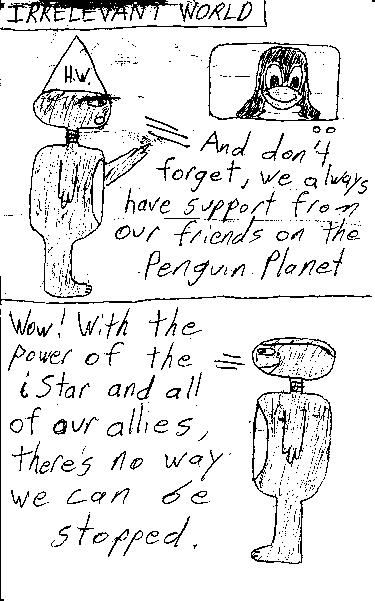 IRRELEVANT WORLD
H.W.
And don't
forget, we always
have support from
our friends on the
Penguin Planet
Wow! With the
power of the
iStar and all
of our allies,
there's no way
we can be
stopped.